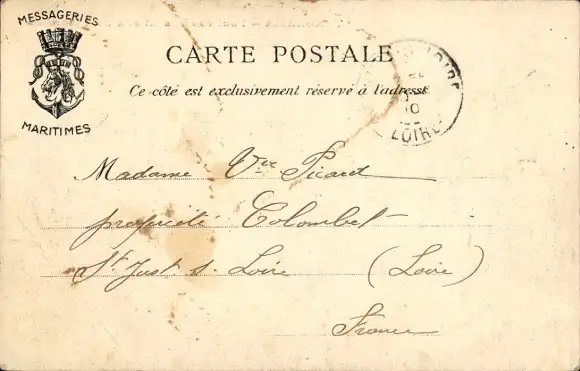 MESSAGERIES
MARITIMES
CARTE POSTALE
Ce côté est exclusivement réservé à l'adresse
LOIRE
LOIRE
Madame Vve Picard
propriété Colombet
St Just s. Loire (Loire)
France